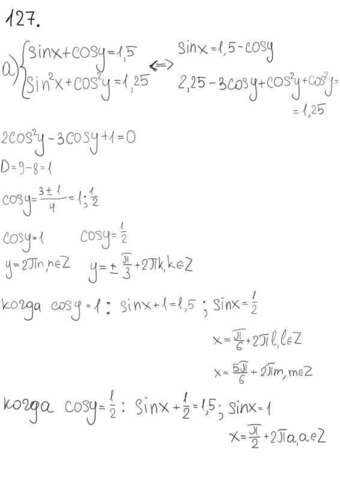 127.
а) { sinx+cosy=1,5 <=> sinx=1,5-cosy
sin²x+cos²y=1,25 2,25-3cosy+cos²y+cos²y=
=1,25
2cos²y-3cosy+1=0
D=9-8=1
cosy=(3±1)/4=1; 1/2
cosy=1 cosy=1/2
y=2πn, n∈Z y=±π/3+2πk, k∈Z
когда cosy=1: sinx+1=1,5; sinx=1/2
x=π/6+2πl, l∈Z
x=5π/6+2πm, m∈Z
когда cosy=1/2: sinx+1/2=1,5; sinx=1
x=π/2+2πa, a∈Z